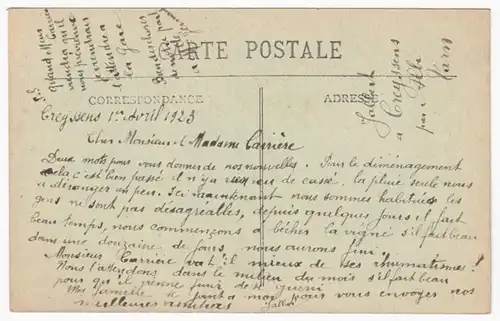 CARTE POSTALE
CORRESPONDANCE
ADRESSE
P.S.
Quand Mons
viendra qu'il
nous prévienne
je viendrais
l'attendre a
la Gare
Jalbert
a Creyssens
par
Creyssens 1er Avril 1925
Cher Monsieur et Madame Carrière
Deux mots pour vous donner de nos nouvelles. Pour le déménagement
cela c'est bien passé il n'y a rien eu de cassé. la pluie seule nous
a déranger un peu. Ici maintenant nous sommes habitués les
gens ne sont pas désagréables, depuis quelques jours il fait
beau temps, nous commençons a bécher la vigne s'il fait beau
dans une douzaine de jours, nous aurons fini.
Monsieur Carrière va t'il mieux de ses rhumatisme?
Nous l'attendons dans le milieu du mois s'il fait beau
pour qu'il prenne
Ma famille se joint a moi pour vous envoyer nos
meilleures amitiers
Jalbert